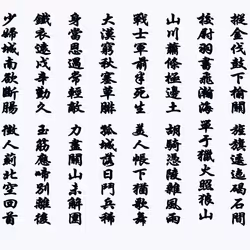 摐金伐鼓下榆關 旌旗逶迤碣石間
校尉羽書飛瀚海 單于獵火照狼山
山川蕭條極邊土 胡騎憑陵雜風雨
戰士軍前半死生 美人帳下猶歌舞
大漠窮秋塞草腓 孤城落日鬥兵稀
身當恩遇常輕敵 力盡關山未解圍
鐵衣遠戍辛勤久 玉筯應啼別離後
少婦城南欲斷腸 徵人薊北空回首